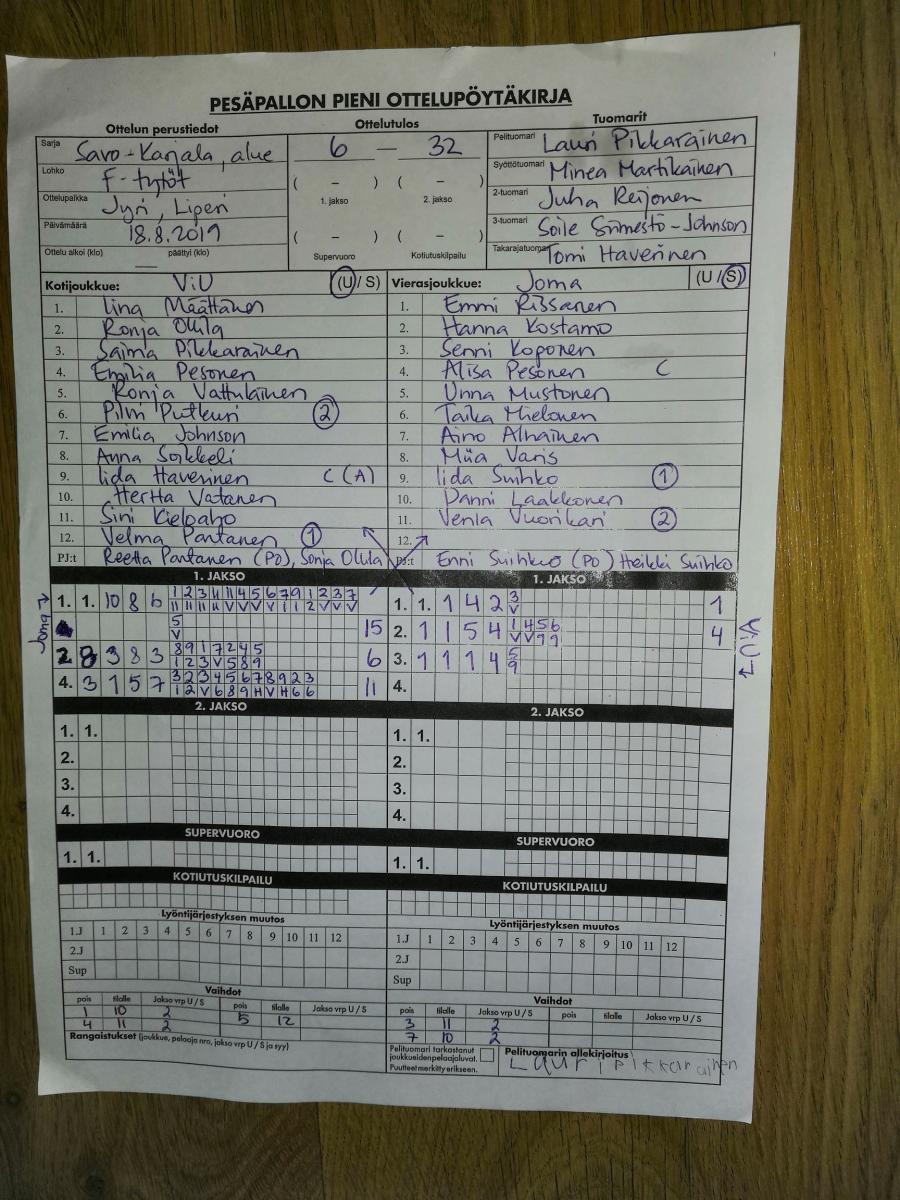 PESÄPALLON PIENI OTTELUPÖYTÄKIRJA
Ottelun perustiedot
Ottelutulos
Tuomarit
Sarja Savo-Karjala, alue
Lohko F-tytöt
Ottelupaikka Jyri, Liperi
Päivämäärä 18.8.2019
Ottelu alkoi (klo) — päättyi (klo)
6 — 32
( – ) ( – )
1. jakso 2. jakso
( – ) ( – )
Supervuoro Kotiutuskilpailu
Pelituomari Lauri Pikkarainen
Syöttötuomari Minea Martikainen
2-tuomari Juha Reijonen
3-tuomari Soile Siimestö-Johnson
Takarajatuomari Tomi Haverinen
Kotijoukkue: ViU (U / S)
1. Iina Määttänen
2. Ronja Ollila
3. Saima Pikkarainen
4. Emilia Pesonen
5. Ronja Vattulainen
6. Pilvi Putkuri 2
7. Emilia Johnson
8. Anna Soikkeli
9. Iida Haverinen C (A)
10. Hertta Vatanen
11. Sini Kieloaho
12. Velma Partanen 1
PJ:t Reetta Partanen (PO), Sonja Ollila
Vierasjoukkue: Joma (U / S)
1. Emmi Rissanen
2. Hanna Kostamo
3. Senni Koponen
4. Alisa Pesonen C
5. Unna Mustonen
6. Taika Mielonen
7. Aino Alhainen
8. Miia Varis
9. Iida Suihko 1
10. Danni Laakkonen
11. Venla Vuorikari 2
12.
PJ:t Enni Suihko (PO) Heikki Suihko
1. JAKSO
Joma
1. 1. 10 8 6
5 V 15
2 8 3 8 3 8 9 1 7 2 4 5 6
1 2 3 V 5 8 9
4. 3 1 5 7 3 2 3 4 5 6 7 8 9 2 3 11
1 2 V 6 8 9 H V H 6 6
1. JAKSO
ViU
1. 1. 1 4 2 3 1
V
2. 1 1 5 4 1 4 5 6 4
V V 9 9
3. 1 1 1 4 5
9
4.
2. JAKSO
1. 1.
2.
3.
4.
2. JAKSO
1. 1.
2.
3.
4.
SUPERVUORO
1. 1.
SUPERVUORO
1. 1.
KOTIUTUSKILPAILU
KOTIUTUSKILPAILU
Lyöntijärjestyksen muutos
1.J 1 2 3 4 5 6 7 8 9 10 11 12
2.J
Sup
Lyöntijärjestyksen muutos
1.J 1 2 3 4 5 6 7 8 9 10 11 12
2.J
Sup
Vaihdot
pois tilalle Jakso vrp U / S pois tilalle Jakso vrp U / S
1 10 2 5 12
4 11 2
Rangaistukset (joukkue, pelaaja nro, jakso vrp U / S ja syy)
Vaihdot
pois tilalle Jakso vrp U / S pois tilalle Jakso vrp U / S
3 11 2
7 10 2
Pelituomari tarkastanut
joukkueiden pelaajaluvat.
Puutteet merkitty erikseen.
Pelituomarin allekirjoitus
Lauri Pikkarainen